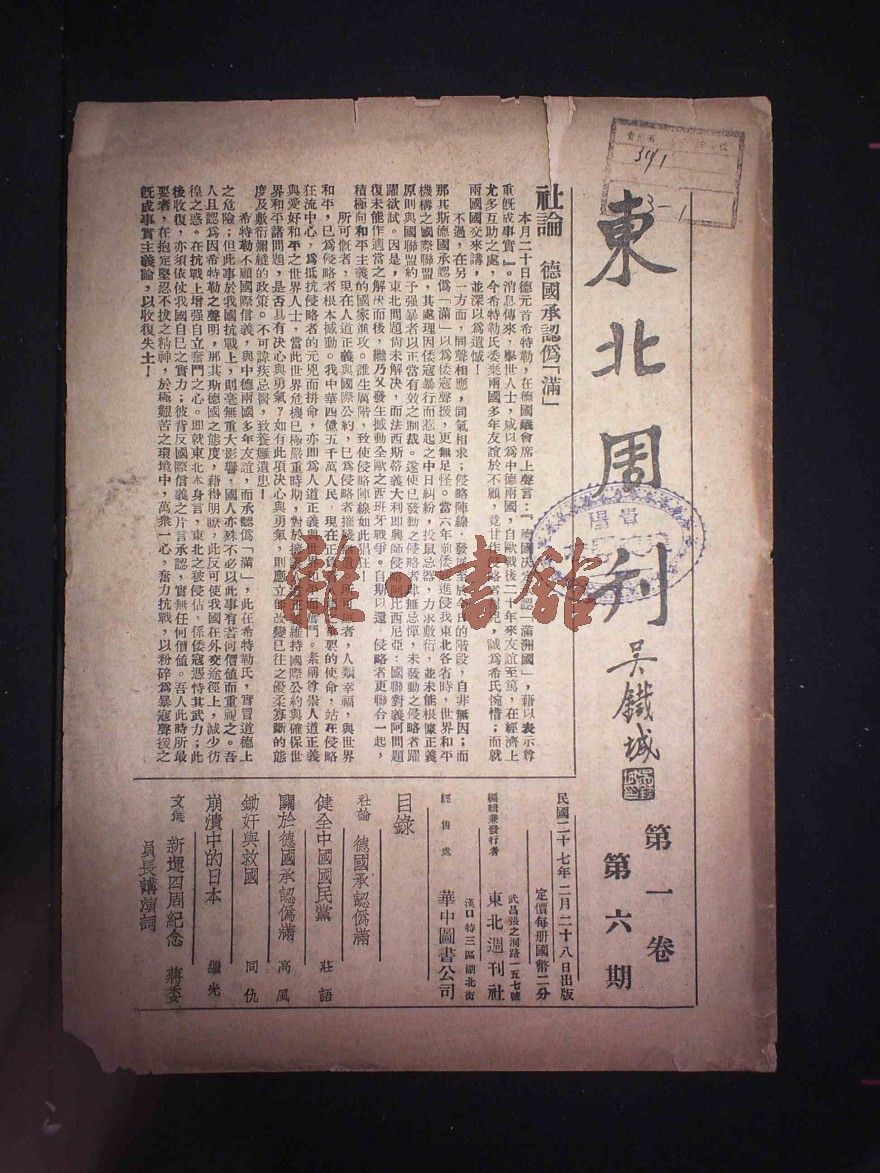 東北周刊
吳鐵城
第一卷
第六期
社論　德國承認僞「滿」
本月二十日德元首希特勒，在德國議會席上聲言：「德國決定承認「滿洲國」，藉以表示尊
重旣成事實」。消息傳來，舉世人士，咸以爲中德兩國，自歐戰後二十年來友誼至篤，在經濟上
尤多互助之處，今希特勒氏委棄兩國多年友誼於不顧，竟甘作侵略者，誠爲希氏惋惜；而就
兩國國交來講，並深以爲遺憾！
不過，在另一方面，同聲相應，同氣相求；侵略陣線，發展至於今日的階段，自非無因；而
那其斯德國承認僞「滿」以爲倭寇聲援，更無足怪。當六年前倭寇進侵我東北各省時，世界和平
機構之國際聯盟，其處理因倭寇暴行而惹起之中日糾紛，投鼠忌器，力求敷衍，並未能根據正義
原則與國聯盟約予强暴者以正當有效之制裁。遂使已發動之侵略者肆無忌憚，未發動之侵略者躍
躍欲試。因是，東北問題尙未解決，而法西斯蒂義大利卽興師侵略阿比西尼亞；國聯對義阿問題
復未能作適當之解決而後，繼乃又發生撼動全歐之西班牙戰爭。自斯以還，侵略者更聯合一起，
積極向和平主義的國家進攻。誰生厲階，致使侵略陣線如此猖狂！
所可慨者，現在人道正義與國際公約，已爲侵略者摧殘，所可者，人類幸福，與世界
和平，已爲侵略者根本撼動。我中華四億五千萬人民，現在正重要的使命，站在侵略
狂流中心，爲抵抗侵略者的元兇而拚命，亦卽爲人道正義與世界和平而奮鬥。素稱尊崇人道正義
與愛好和平之世界人士，當此世界危機已極嚴重時期，對於擁護正維持國際公約與確保世
界和平諸問題，是否具有決心與勇氣？如有此項決心與勇氣，則應立卽改變已往之優柔寡斷的態
度及敷衍彌縫的政策。不可諱疾忌醫，致養癰遺患！
希特勒不顧國際信義，與中德兩國多年友誼，而承認僞「滿」，此在希特勒氏，實冒道德上
之危險；但此事於我國抗戰上，則毫無重大影響，國人亦殊不必以此事有若何價値而重視之。吾
人且認爲因希特勒之聲明，那其斯德國之態度，藉得明瞭，此反可使我國在外交途徑上，減少彷
徨之惑。在抗戰上增强自立奮鬥之心。卽就東北本身言，東北之被侵佔，係倭寇憑恃其武力；此
後收復，亦須依仗我國自己之實力；彼背反國際信義之片言承認，實無任何價値。吾人此時所最
要者，在抱定堅忍不拔之精神，於極艱苦之環境中，萬衆一心，奮力抗戰，以粉碎爲暴寇聲援之
旣成事實主義論，以收復失土！
民國二十七年二月二十八日出版
定價每册國幣二分
編輯兼發行者　東北週刊社
武昌張之洞路一五七號
經售處　華中圖書公司
漢口特三區湖北街
目錄
社論　德國承認僞滿
健全中國國民黨　莊語
關於德國承認僞滿　高風
鋤奸與救國　同仇
崩潰中的日本　繼光
文彙　新運四周紀念　蔣委
員長講演詞
雜·書館